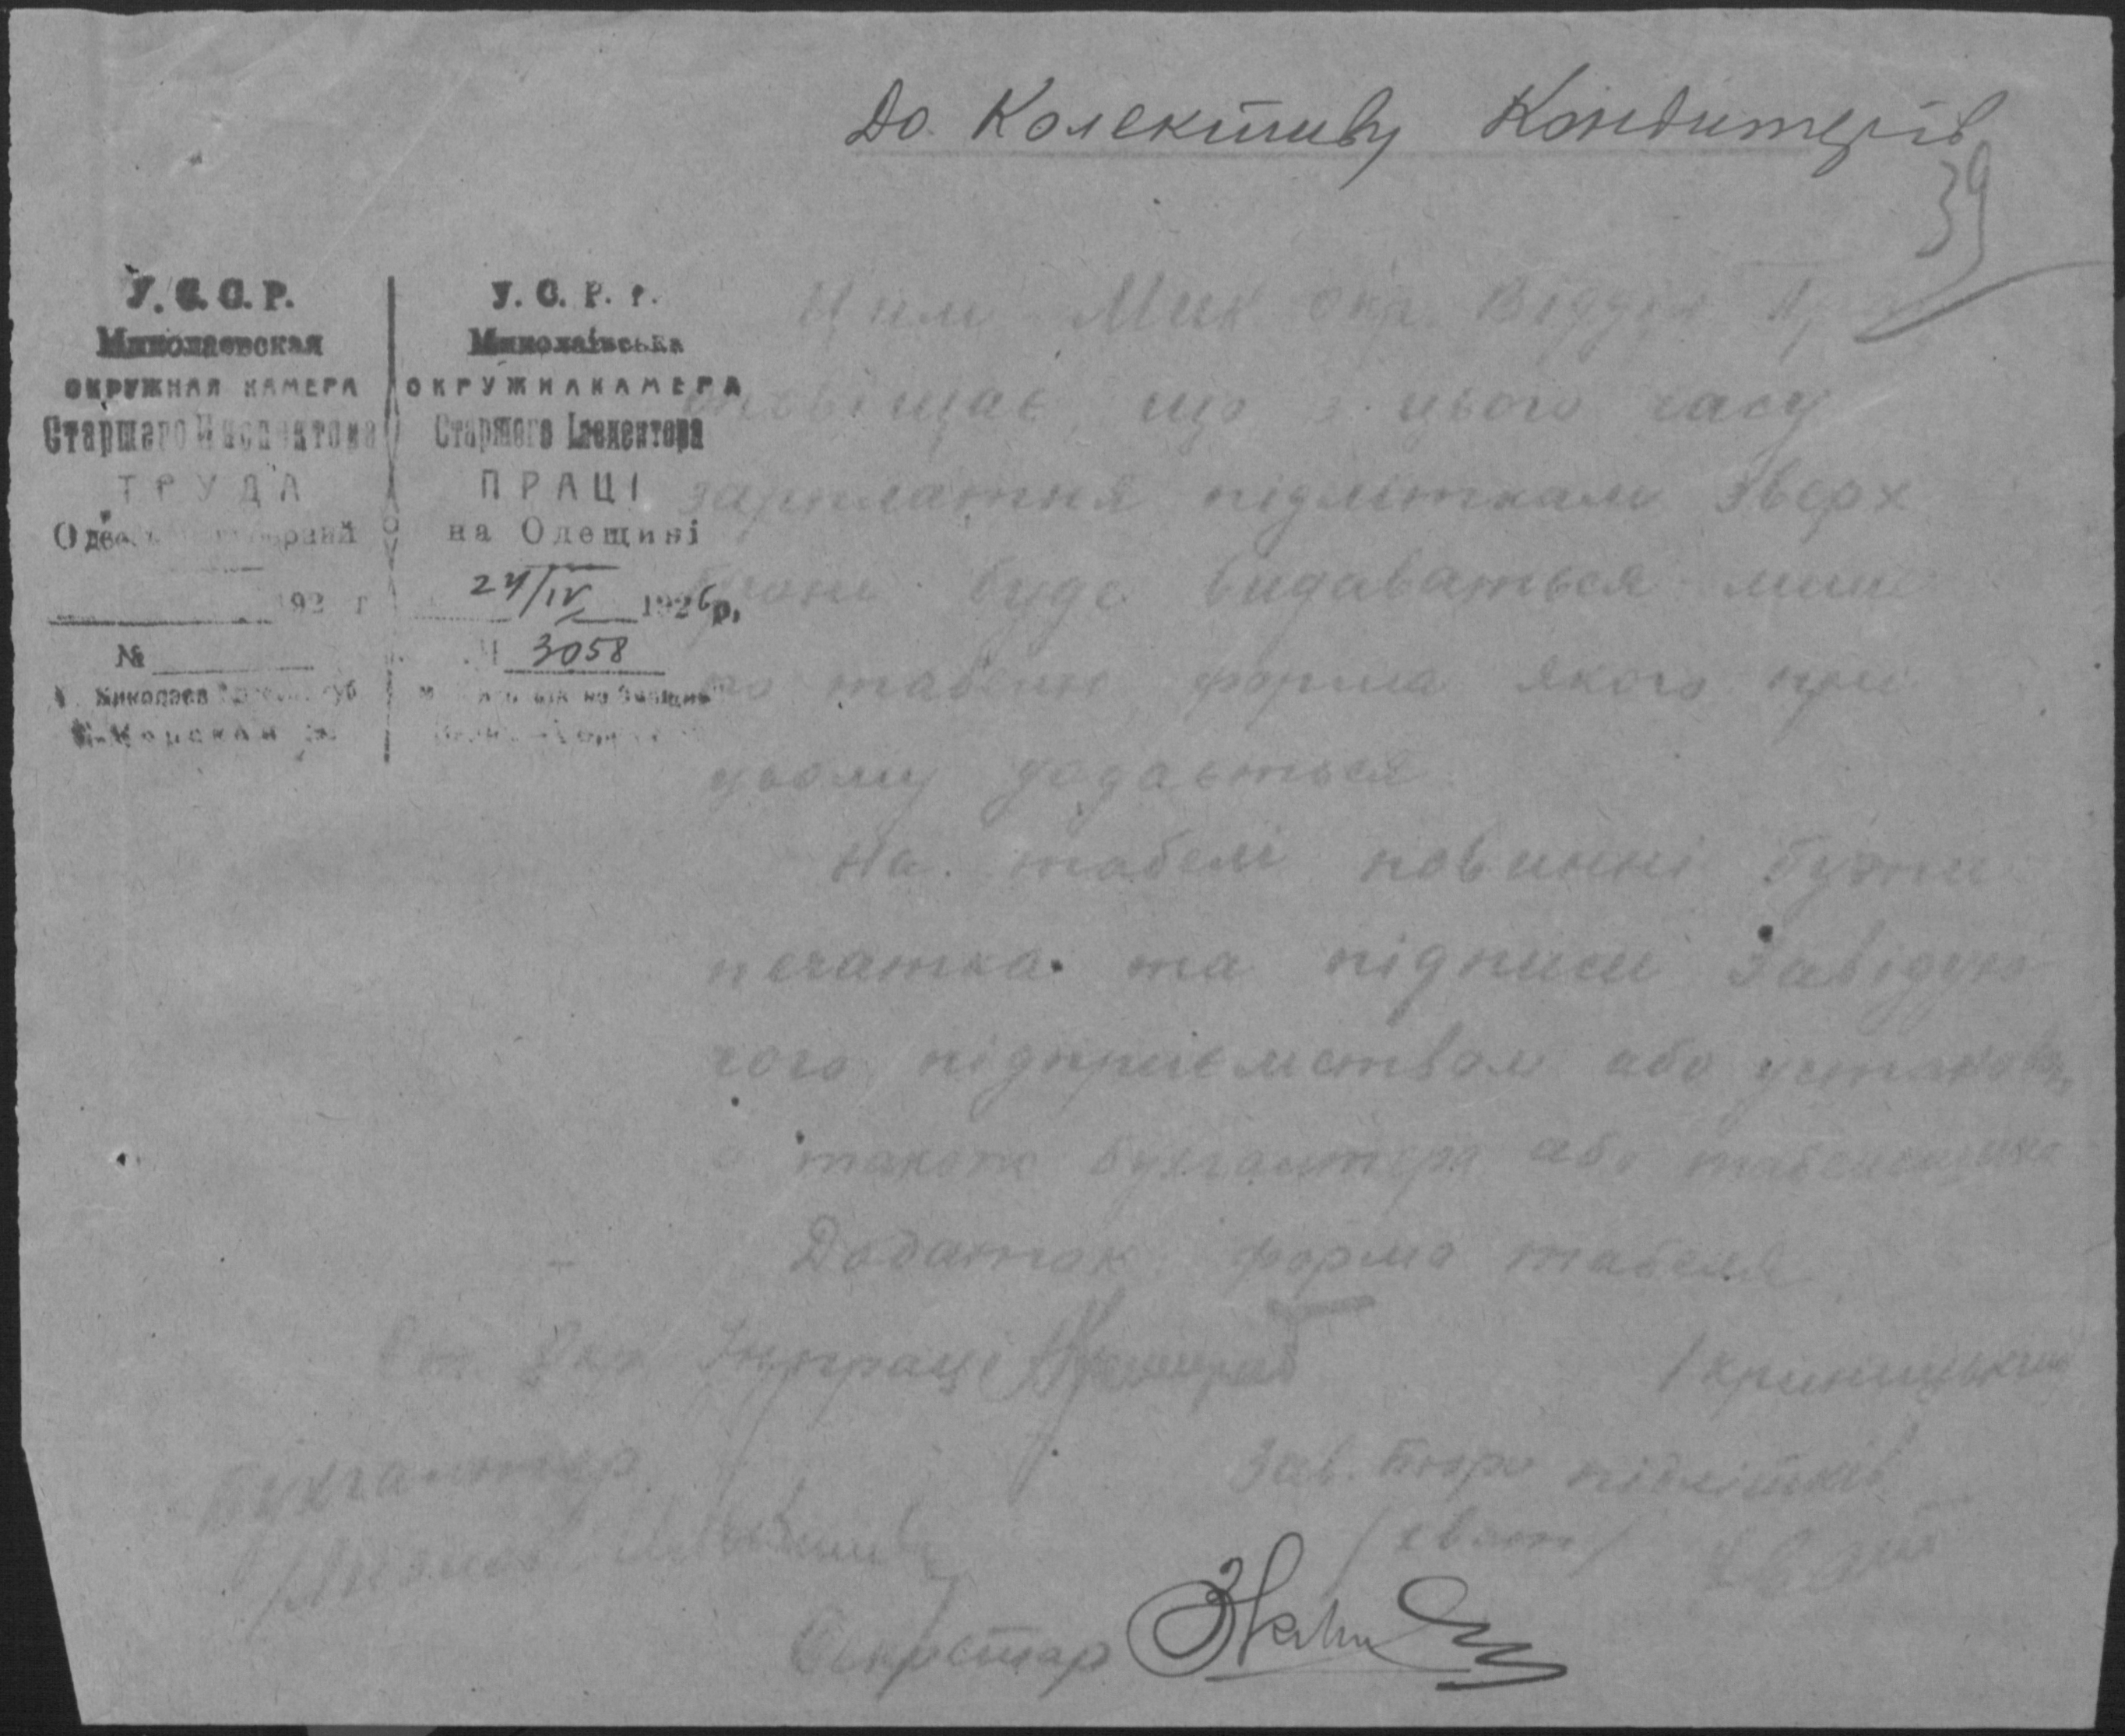 До Колективу Кондитерів
39
У.С.С.Р.
Николаевская
ОКРУЖНАЯ КАМЕРА
Старшего Инспектора
ТРУДА
192 г
№
Николаев
У.С.Р.Р.
Миколаївська
ОКРУЖНА КАМЕРА
Старшего Інспектора
ПРАЦІ
на Одещині
24/IV 1926 р.
3058
Цим Мик Окр. Відділ Праці
оповіщає, що з цього часу
зарплатня підліткам зверх
броні буде видаваться лише
по табелю форма якого при
цьому додається
На табелі повинні бути
печатка та підписи Завідую
чого підприємством або установи,
а також бухгалтера або табельщика
Додаток: форма табеля
Ст. Окр. Інпраці
/Криницький
Бухгалтер
Зав. Бюро підлітків
Секретар